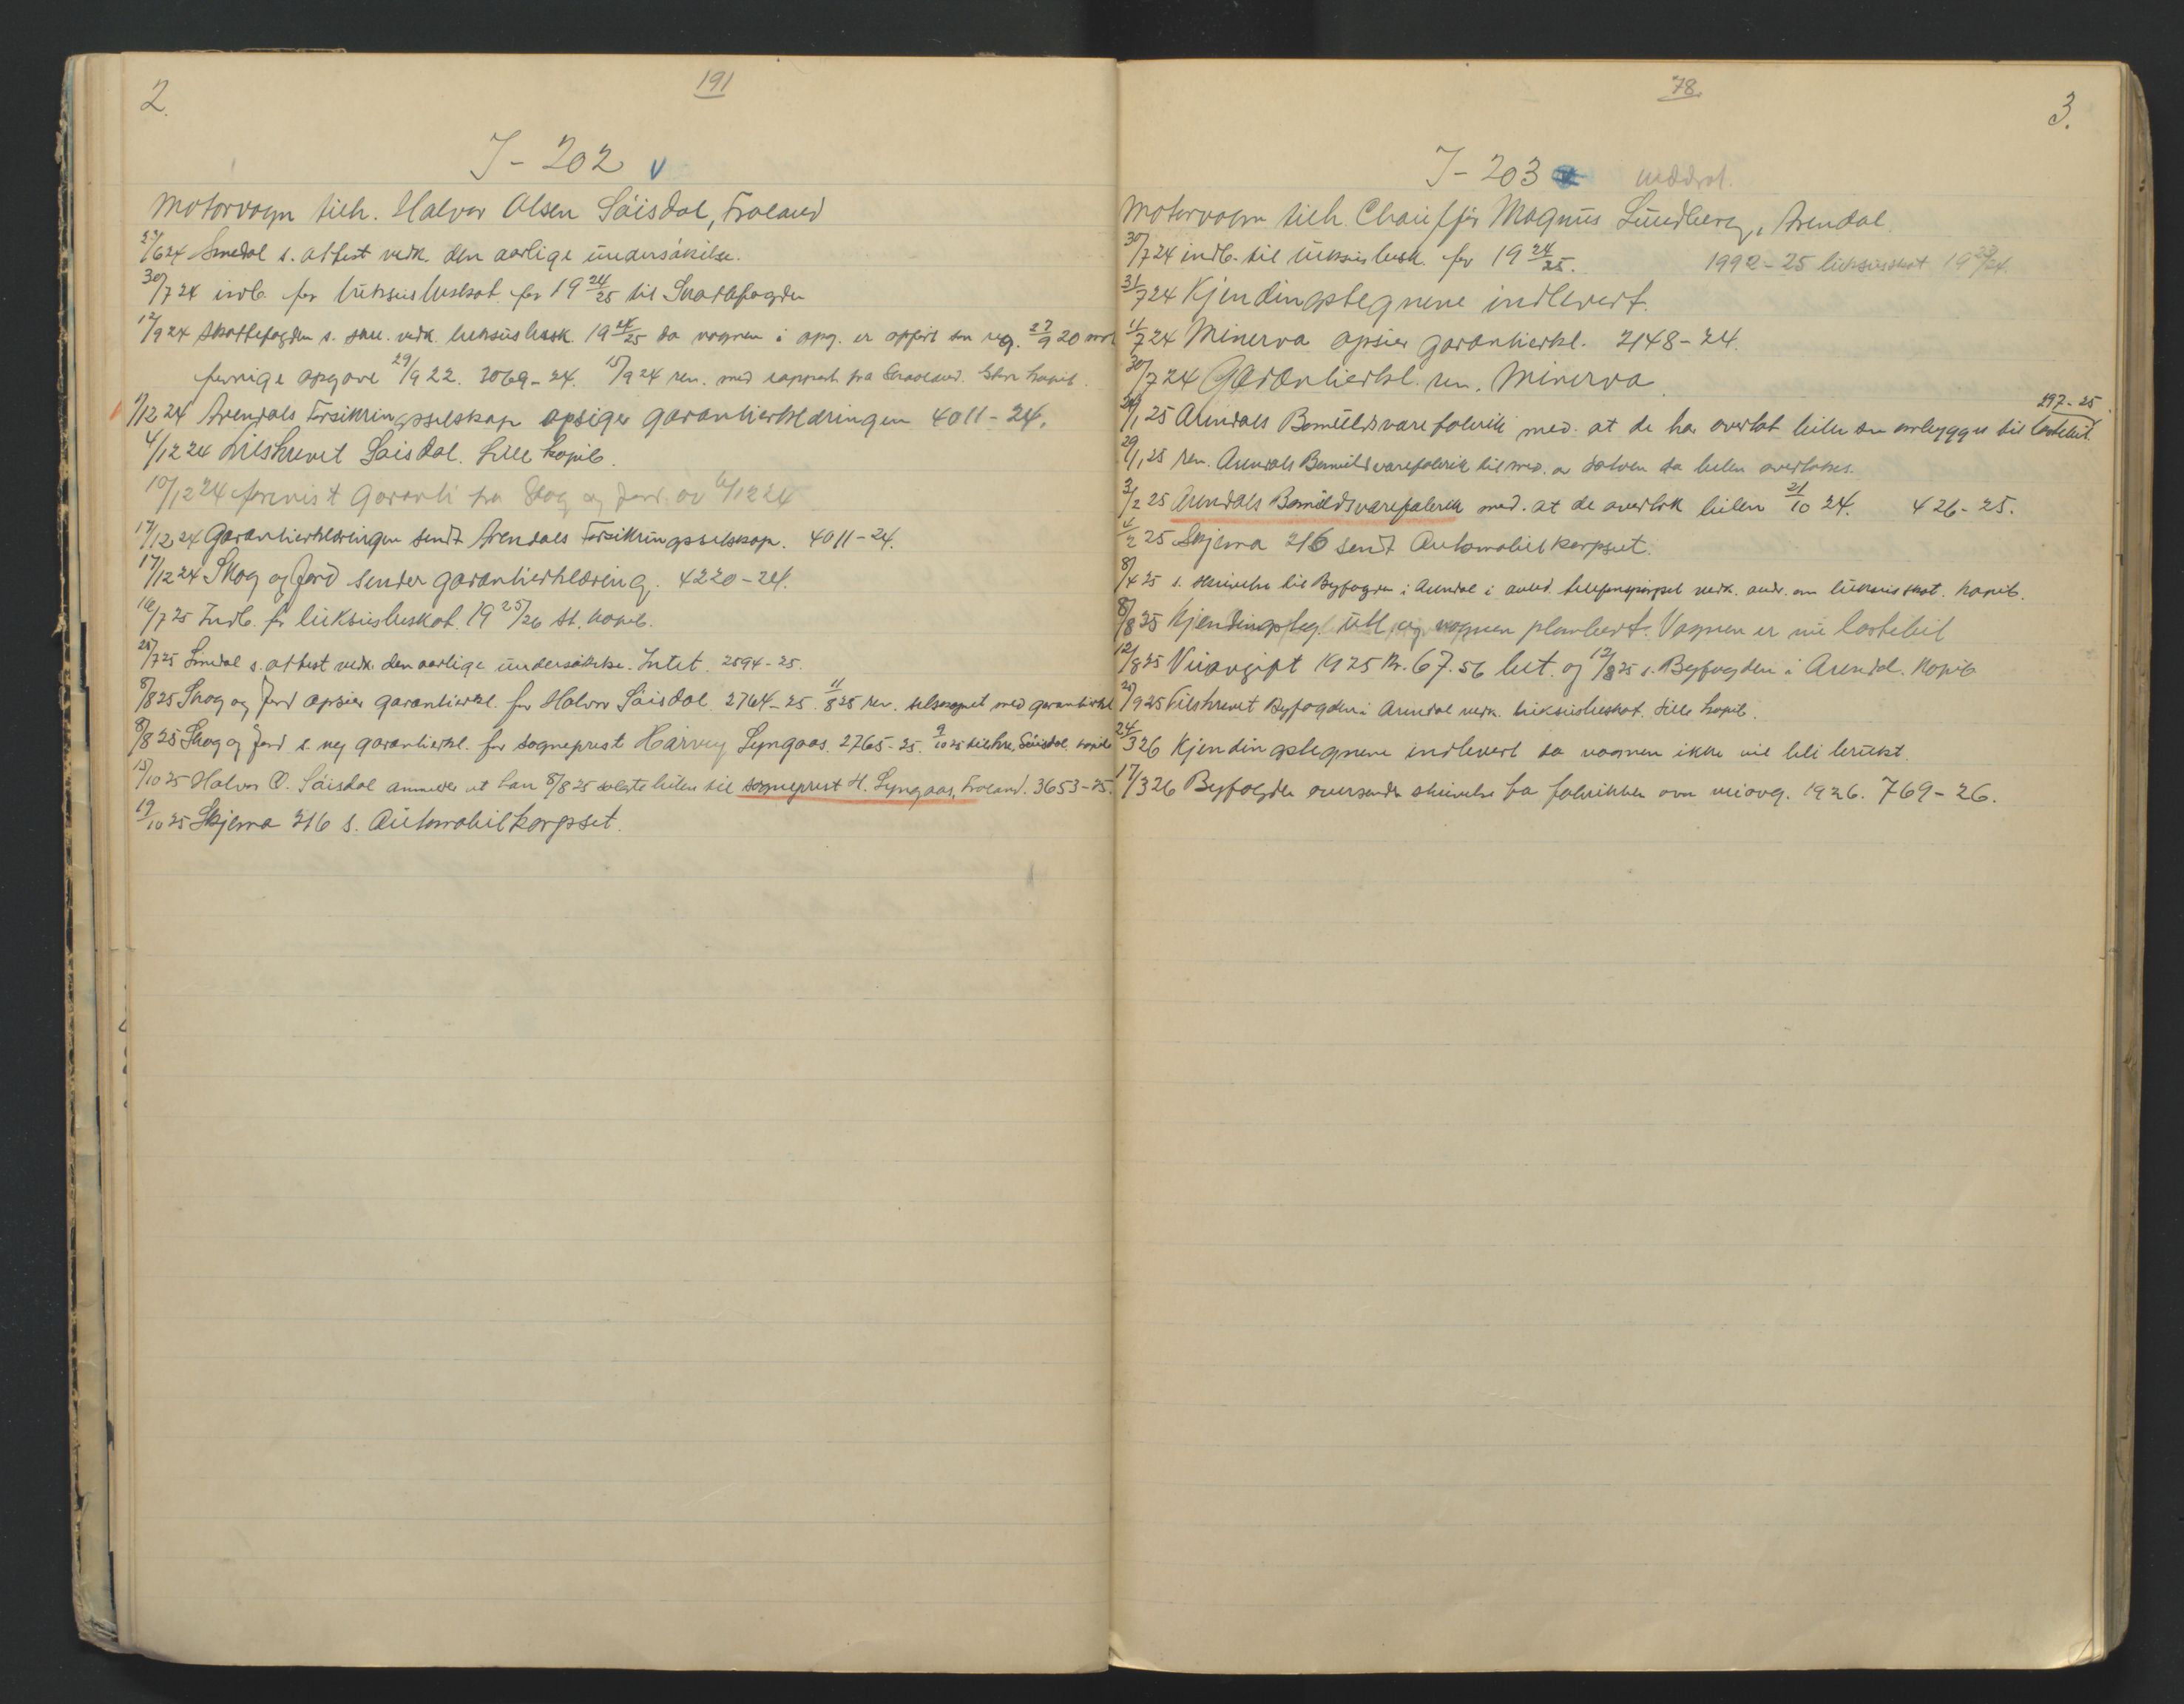 2.
191
I - 202 v
Motorvogn tilh. Halvor Olsen Säisdal, Froland
27/6 24 Smedal s. attest vedk. den aarlige undersökelse.
30/7 24 indb. for luksusbeskat. for 19 24/25 til Skattefogden
12/9 24 Skattefogden s. skr. vedk. luksusbesk. 19 24/25 da vognen i opg. er opfört som reg. 27/9 20 mot
forrige opgave 29/9 22. 3069-24. 15/9 24 ren. med rapport fra Store kopib.
1/12 24 Arendals Forsikringsselskap opsiger garantierklæringen 4011-24.
4/12 24 tilskrevet Säisdal. Lille kopib.
10/12 24 forevist garanti fra Skog og Jord av 6/12 24
17/12 24 Garantierklæringen sendt Arendals Forsikringsselskap. 4011-24.
17/12 24 Skog og Jord sender garantierklæring. 4220-24.
16/7 25 Indb. for luksusbeskat. 19 25/26 St. kopib.
25/7 25 Smedal s. attest vedk. den aarlige undersökelse. Intet. 2594-25.
8/8 25 Skog og Jord opsier garantierkl. for Halvor Säisdal. 2764-25. 11/8 25 ren. selskapet med garantierkl
8/8 25 Skog og Jord s. ny garantierkl. for sogneprest Harvey Lyngaas. 2765-25. 9/10 25 tilskr. Säisdal. kopib
15/10 25 Halvor O. Säisdal anmelder at han 8/8 25 solgte bilen til sogneprest H. Lyngaas, Froland. 3653-25.
19/10 25 Skjema 216 s. Automobilkorpset.
78.
3.
I - 203 neddrat.
Motorvogn tilh. Chaufför Magnus Lundberg, Arendal.
30/7 24 indb. til luksusbesk. for 19 24/25. 1992-25 luksusskat 19 23/24.
31/7 24 Kjendingstegnene indlevert.
11/7 24 Minerva opsier garantierkl. 2148-24.
30/7 24 Garantierkl. ren. Minerva
297-25.
24/1 25 Arendals Bomuldsvarefabrik med. at de har overtat bilen som ombygges til lastebil.
29/1 25 ren. Arendals Bomuldsvarefabrik til med. av datoen da bilen overtokes.
3/2 25 Arendals Bomuldsvarefabrik med. at de overtok bilen 21/10 24. 426-25.
4/2 25 Skjema 216 sendt Automobilkorpset.
8/4 25 s. skrivelse til Byfogden i Arendal i anled. telefonspörsel vedk. andr. om luksusskat. kopib.
8/8 25 Kjendingsteg. utl. og vognen plombert. Vognen er nu lastebil
12/8 25 Veiavgift 1925 kr. 67.56 bet. og 12/8 25 s. Byfogden i Arendal. Kopib
25/9 25 tilskrevet Byfogden i Arendal vedk. luksusbeskat. Lille kopib.
24/3 26 Kjendingstegnene indlevert da vognen ikke vil bli brukt.
17/3 26 Byfogden oversender skrivelse fra fabrikken om veiavg. 1926. 769-26.